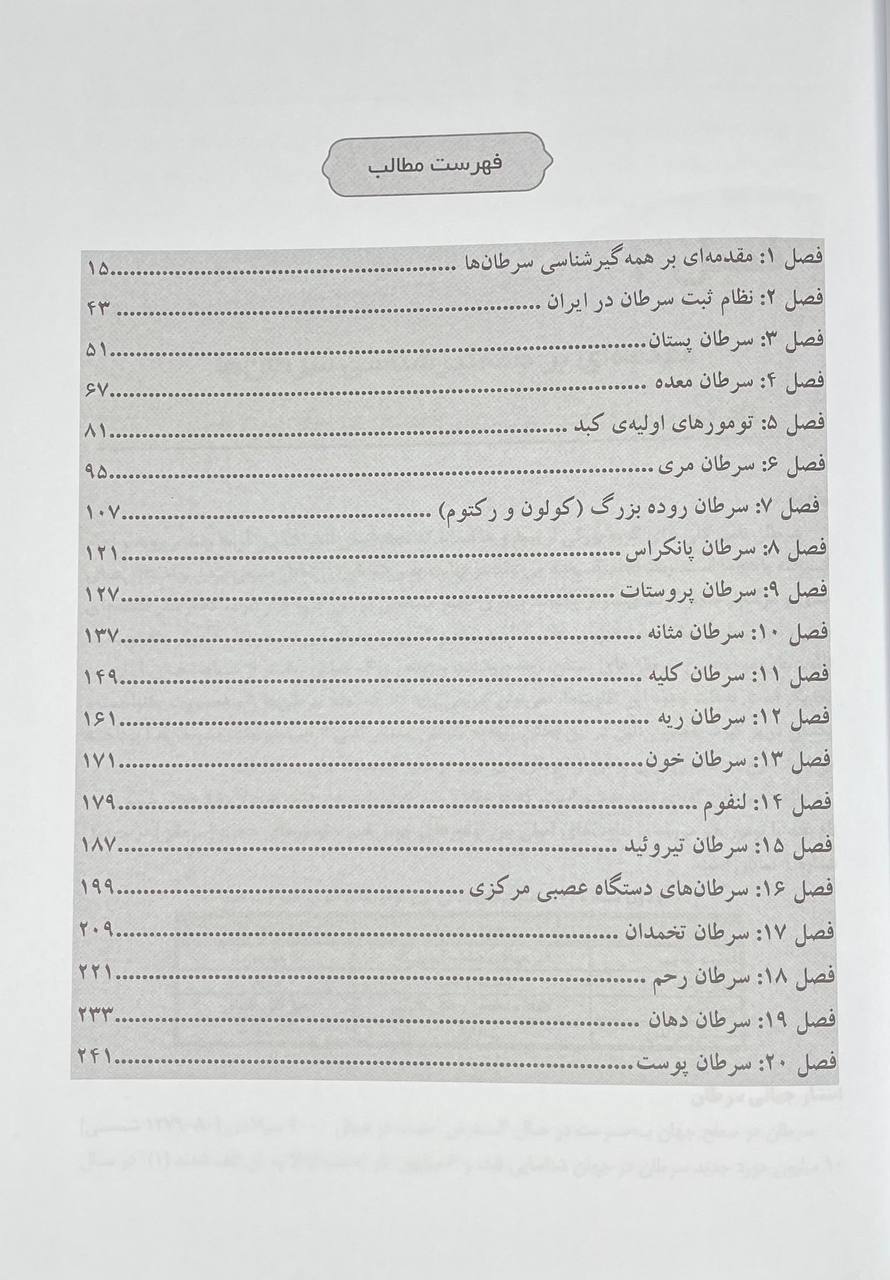 فهرست مطالب
فصل ۱: مقدمه‌ای بر همه‌گیرشناسی سرطان‌ها ..................................................۱۵
فصل ۲: نظام ثبت سرطان در ایران .............................................................. ۴۳
فصل ۳: سرطان پستان...............................................................................۵۱
فصل ۴: سرطان معده ...............................................................................۶۷
فصل ۵: تومورهای اولیه‌ی کبد ...................................................................۸۱
فصل ۶: سرطان مری ................................................................................۹۵
فصل ۷: سرطان روده بزرگ (کولون و رکتوم) ..............................................۱۰۷
فصل ۸: سرطان پانکراس..........................................................................۱۲۱
فصل ۹: سرطان پروستات.........................................................................۱۲۷
فصل ۱۰: سرطان مثانه .............................................................................۱۳۷
فصل ۱۱: سرطان کلیه .............................................................................۱۴۹
فصل ۱۲: سرطان ریه ..............................................................................۱۶۱
فصل ۱۳: سرطان خون.............................................................................۱۷۱
فصل ۱۴: لنفوم ......................................................................................۱۷۹
فصل ۱۵: سرطان تیروئید .........................................................................۱۸۷
فصل ۱۶: سرطان‌های دستگاه عصبی مرکزی ...................................................۱۹۹
فصل ۱۷: سرطان تخمدان .........................................................................۲۰۹
فصل ۱۸: سرطان رحم .............................................................................۲۲۱
فصل ۱۹: سرطان دهان ............................................................................۲۳۳
فصل ۲۰: سرطان پوست............................................................................۲۴۱